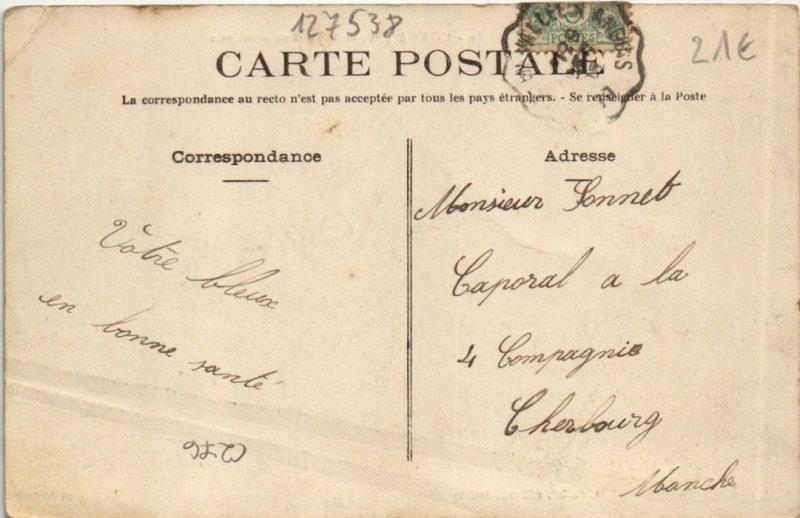 127538
21€
CARTE POSTALE
La correspondance au recto n'est pas acceptée par tous les pays étrangers. - Se renseigner à la Poste
Correspondance
Votre bleux
en bonne santé
C276
Adresse
Monsieur Sonnet
Caporal a la
4 Compagnie
Cherbourg
Manche